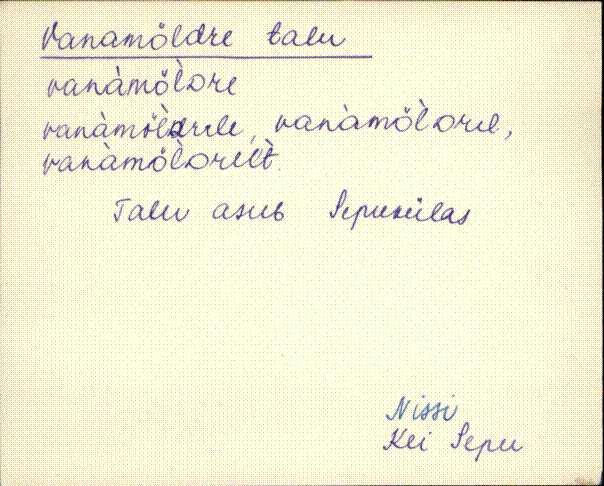 Vanamöldre talu
vanàmöl̀dre
vanàmöl̀drele, vanàmöl̀drel,
vanàmöl̀drelt.
Talu asub Sepukülas
Nissi
Kei Sepu